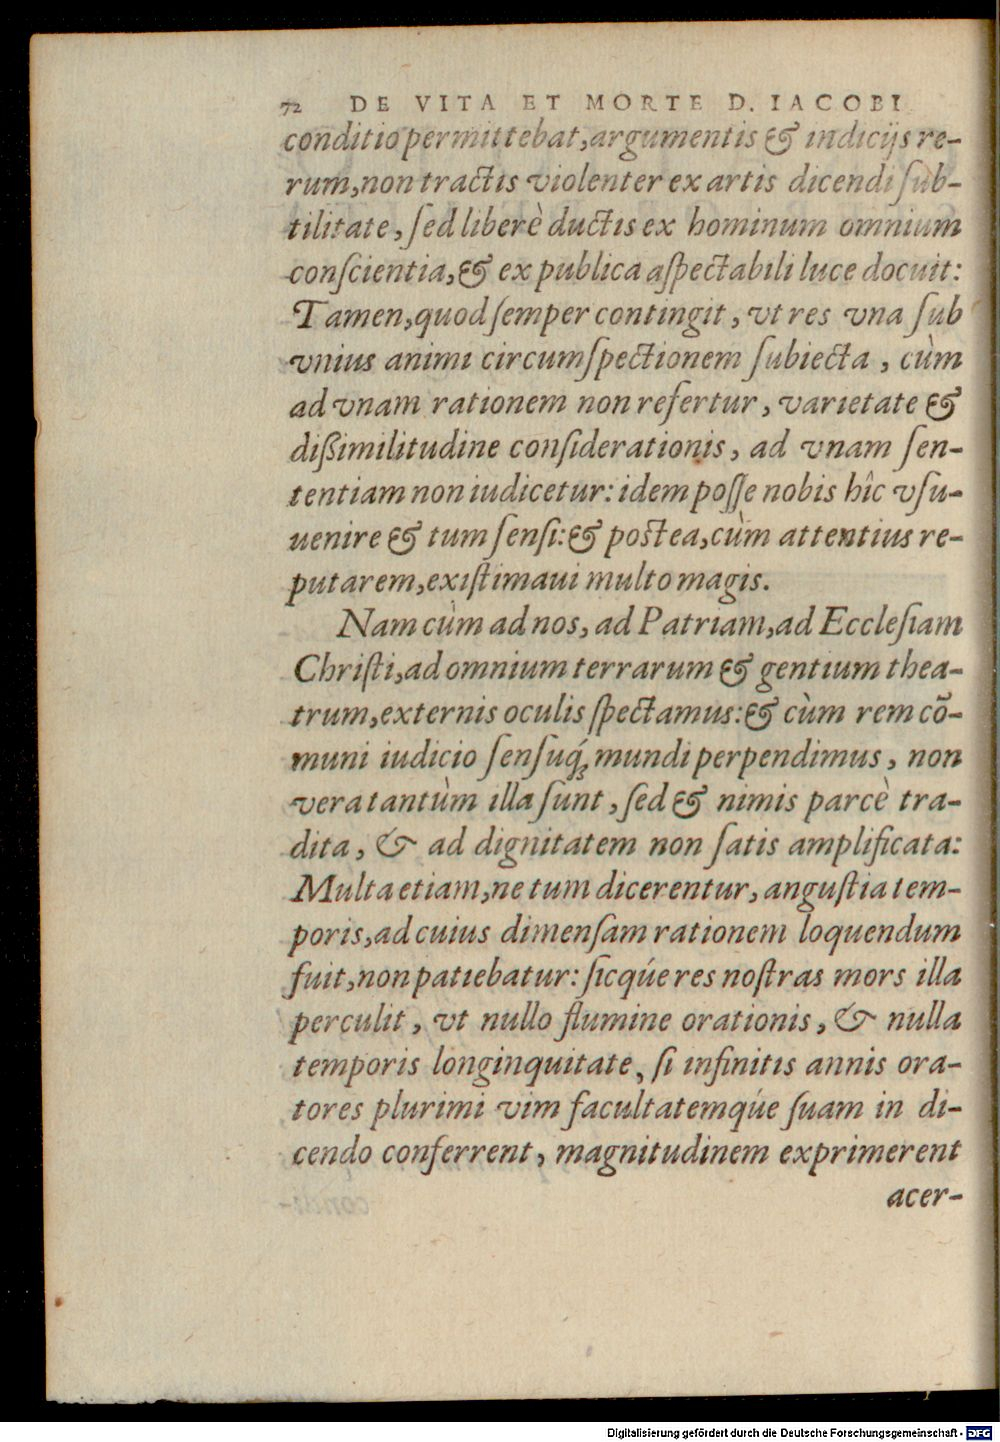 72 DE VITA ET MORTE D. IACOBI
conditio permittebat, argumentis & indicijs re-
rum, non tractis violenter ex artis dicendi ſub-
tilitate, ſed liberè ductis ex hominum omnium
conſcientia, & ex publica aſpectabili luce docuit:
Tamen, quod ſemper contingit, vt res vna ſub
vnius animi circumſpectionem ſubiecta, cùm
ad vnam rationem non refertur, varietate &
dißimilitudine conſiderationis, ad vnam ſen-
tentiam non iudicetur: idem poſſe nobis hîc vſu-
uenire & tum ſenſi: & poſtea, cùm attentius re-
putarem, exiſtimaui multo magis.
Nam cùm ad nos, ad Patriam, ad Eccleſiam
Chriſti, ad omnium terrarum & gentium thea-
trum, externis oculis ſpectamus: & cùm rem cõ-
muni iudicio ſenſuq́; mundi perpendimus, non
vera tantùm illa ſunt, ſed & nimis parcè tra-
dita, & ad dignitatem non ſatis amplificata:
Multa etiam, ne tum dicerentur, anguſtia tem-
poris, ad cuius dimenſam rationem loquendum
fuit, non patiebatur: ſicq́ue res noſtras mors illa
perculit, vt nullo flumine orationis, & nulla
temporis longinquitate, ſi infinitis annis ora-
tores plurimi vim facultatemq́ue ſuam in di-
cendo conferrent, magnitudinem exprimerent
acer-
Digitalisierung gefördert durch die Deutsche Forschungsgemeinschaft - DFG